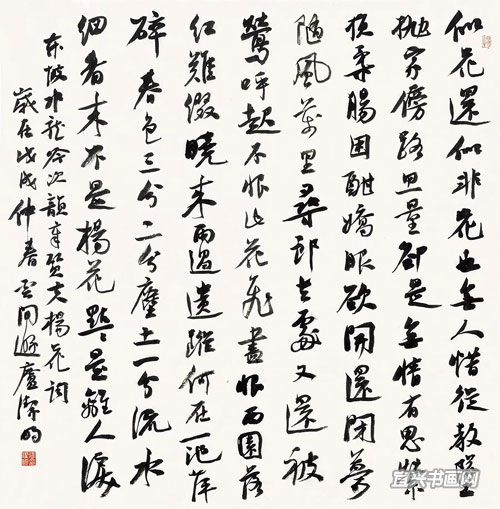 似花還似非花也無人惜從教墜
拋家傍路思量卻是無情有思縈
損柔腸困酣嬌眼欲開還閉夢
隨風萬里尋郎去處又還被
鶯呼起不恨此花飛盡恨西園落
紅難綴曉來雨過遺蹤何在一池萍
碎春色三分二分塵土一分流水
細看來不是楊花點點是離人淚
東坡水龍吟次韻章質夫楊花詞
歲在戊戌仲春雲間遯廬潔明
宜兴书画网